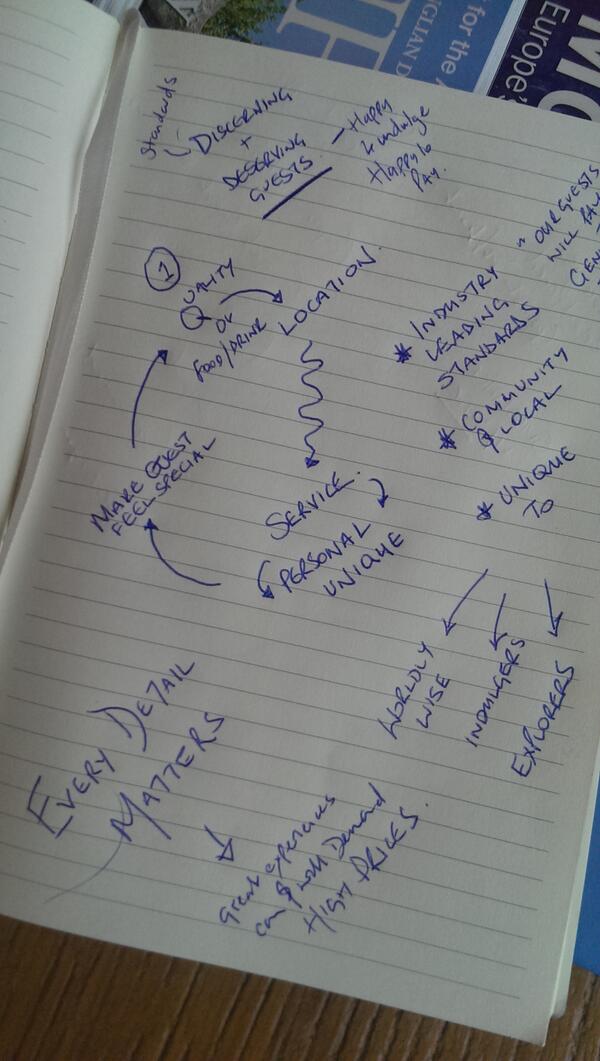 GLIAN D
for the
Europe's
Standards
DISCERNING
+
DESERVING
GUESTS
- Happy
to indulge
Happy to
Pay.
"OUR GUESTS
WILL PAY
1
QUALITY
OF
FOOD/DRINK
LOCATION.
SERVICE.
PERSONAL
UNIQUE
MAKE GUEST
FEEL SPECIAL
* INDUSTRY
LEADING
STANDARDS
* COMMUNITY
& LOCAL
* UNIQUE
TO
WORLDLY
WISE
INDULGERS
EXPLORERS
EVERY DETAIL
MATTERS
Great experiences
can & will Demand
HIGH PRICES.